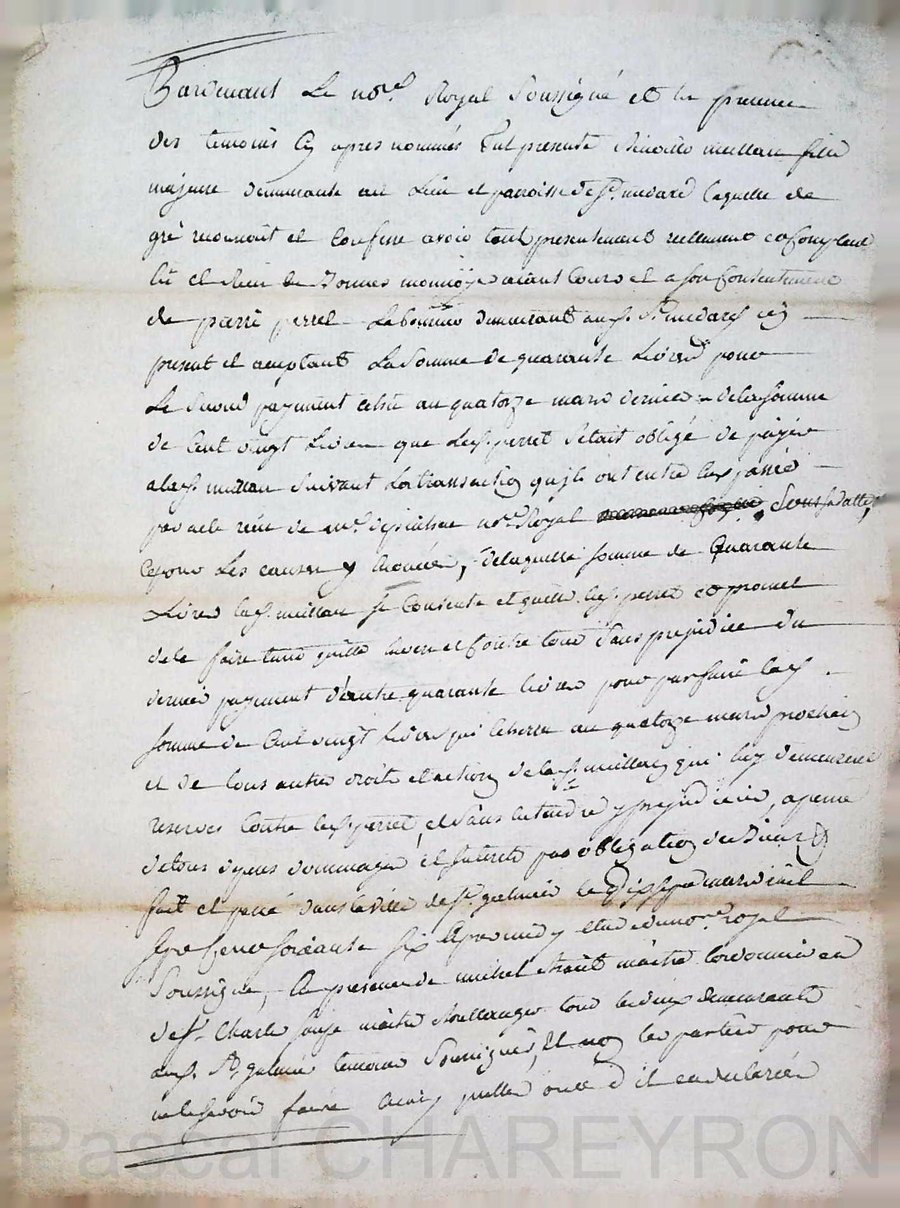 Pardevant Le no.re Royal Soussigné et en presence
des temoins Cy apres nommés fut presente meillan fille
majeure demeurante au Lieu et parroisse de St. medard Laquelle de
gré reconnoit et Confesse avoir tout presentement reellement et Comptant
eü et Reçu en bonnes monnoÿe aiant Cours et a son Consentement
de pierre perret Laboureur demeurant aud. St. medard icy
present et aceptant La Somme de quarante Livres pour
Le Second payement échu au quatorze mars dernier de la Somme
de Cent vingt Livres que Led. perret S'etait obligé de païer
a lad. meillan Suivant La transaction qu'ils ont entre Eux passé
par acte reçu de me. no.re Royal Sous Sa datte,
Et pour Les causes y Enoncées, de laquelle Somme de Quarante
Livres lad. meillan Se Contente et quitte led. perret et promet
de le faire tenir quitte Envers et Contre tous Sans prejudice du
dernier payement d'autre quarante Livres pour parfaire lad.
Somme de Cent vingt Livres qui Echerra au quatorze mars prochain
et de tous autres droits et actions de lad. meillan qui luy demeurent
reservés Contre led. perret, et Sans entendre y prejudicier, a peine
de tous depens dommages et Interets par obligation de Biens
fait et passé dans la ville de St. galmier le mars mil
Sept Cens Soixante Six Apres midy Etude du no.re royal
Soussigné, En presence de michel maitre Cordonnier et
de Sr. Charle maitre tous les deux demeurants
aud. St. galmier temoins Soussignés, Et non les parties pour
ne le Savoir faire ainsy qu'elles ont dit et declaré
Pascal CHAREYRON